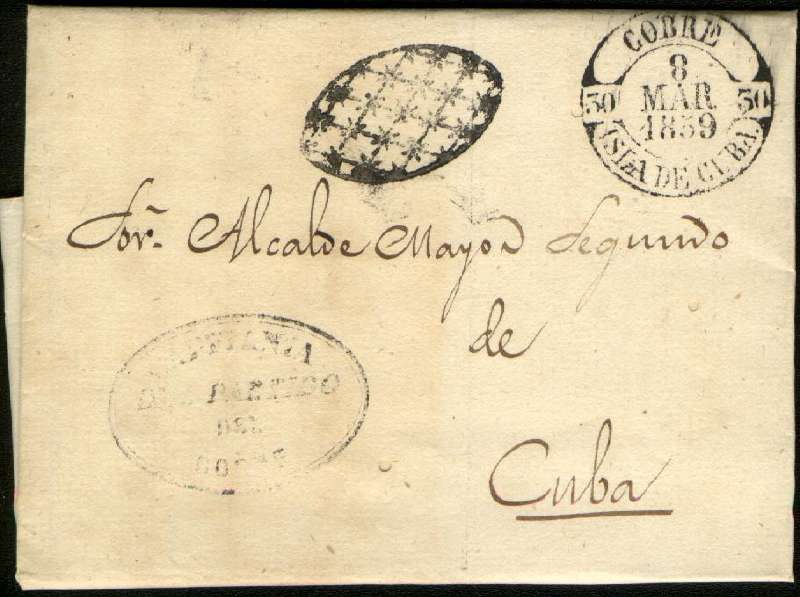 COBRE
8
MAR
1859
30 30
ISLA DE CUBA
Sor. Alcalde Mayor Segundo
de
Cuba